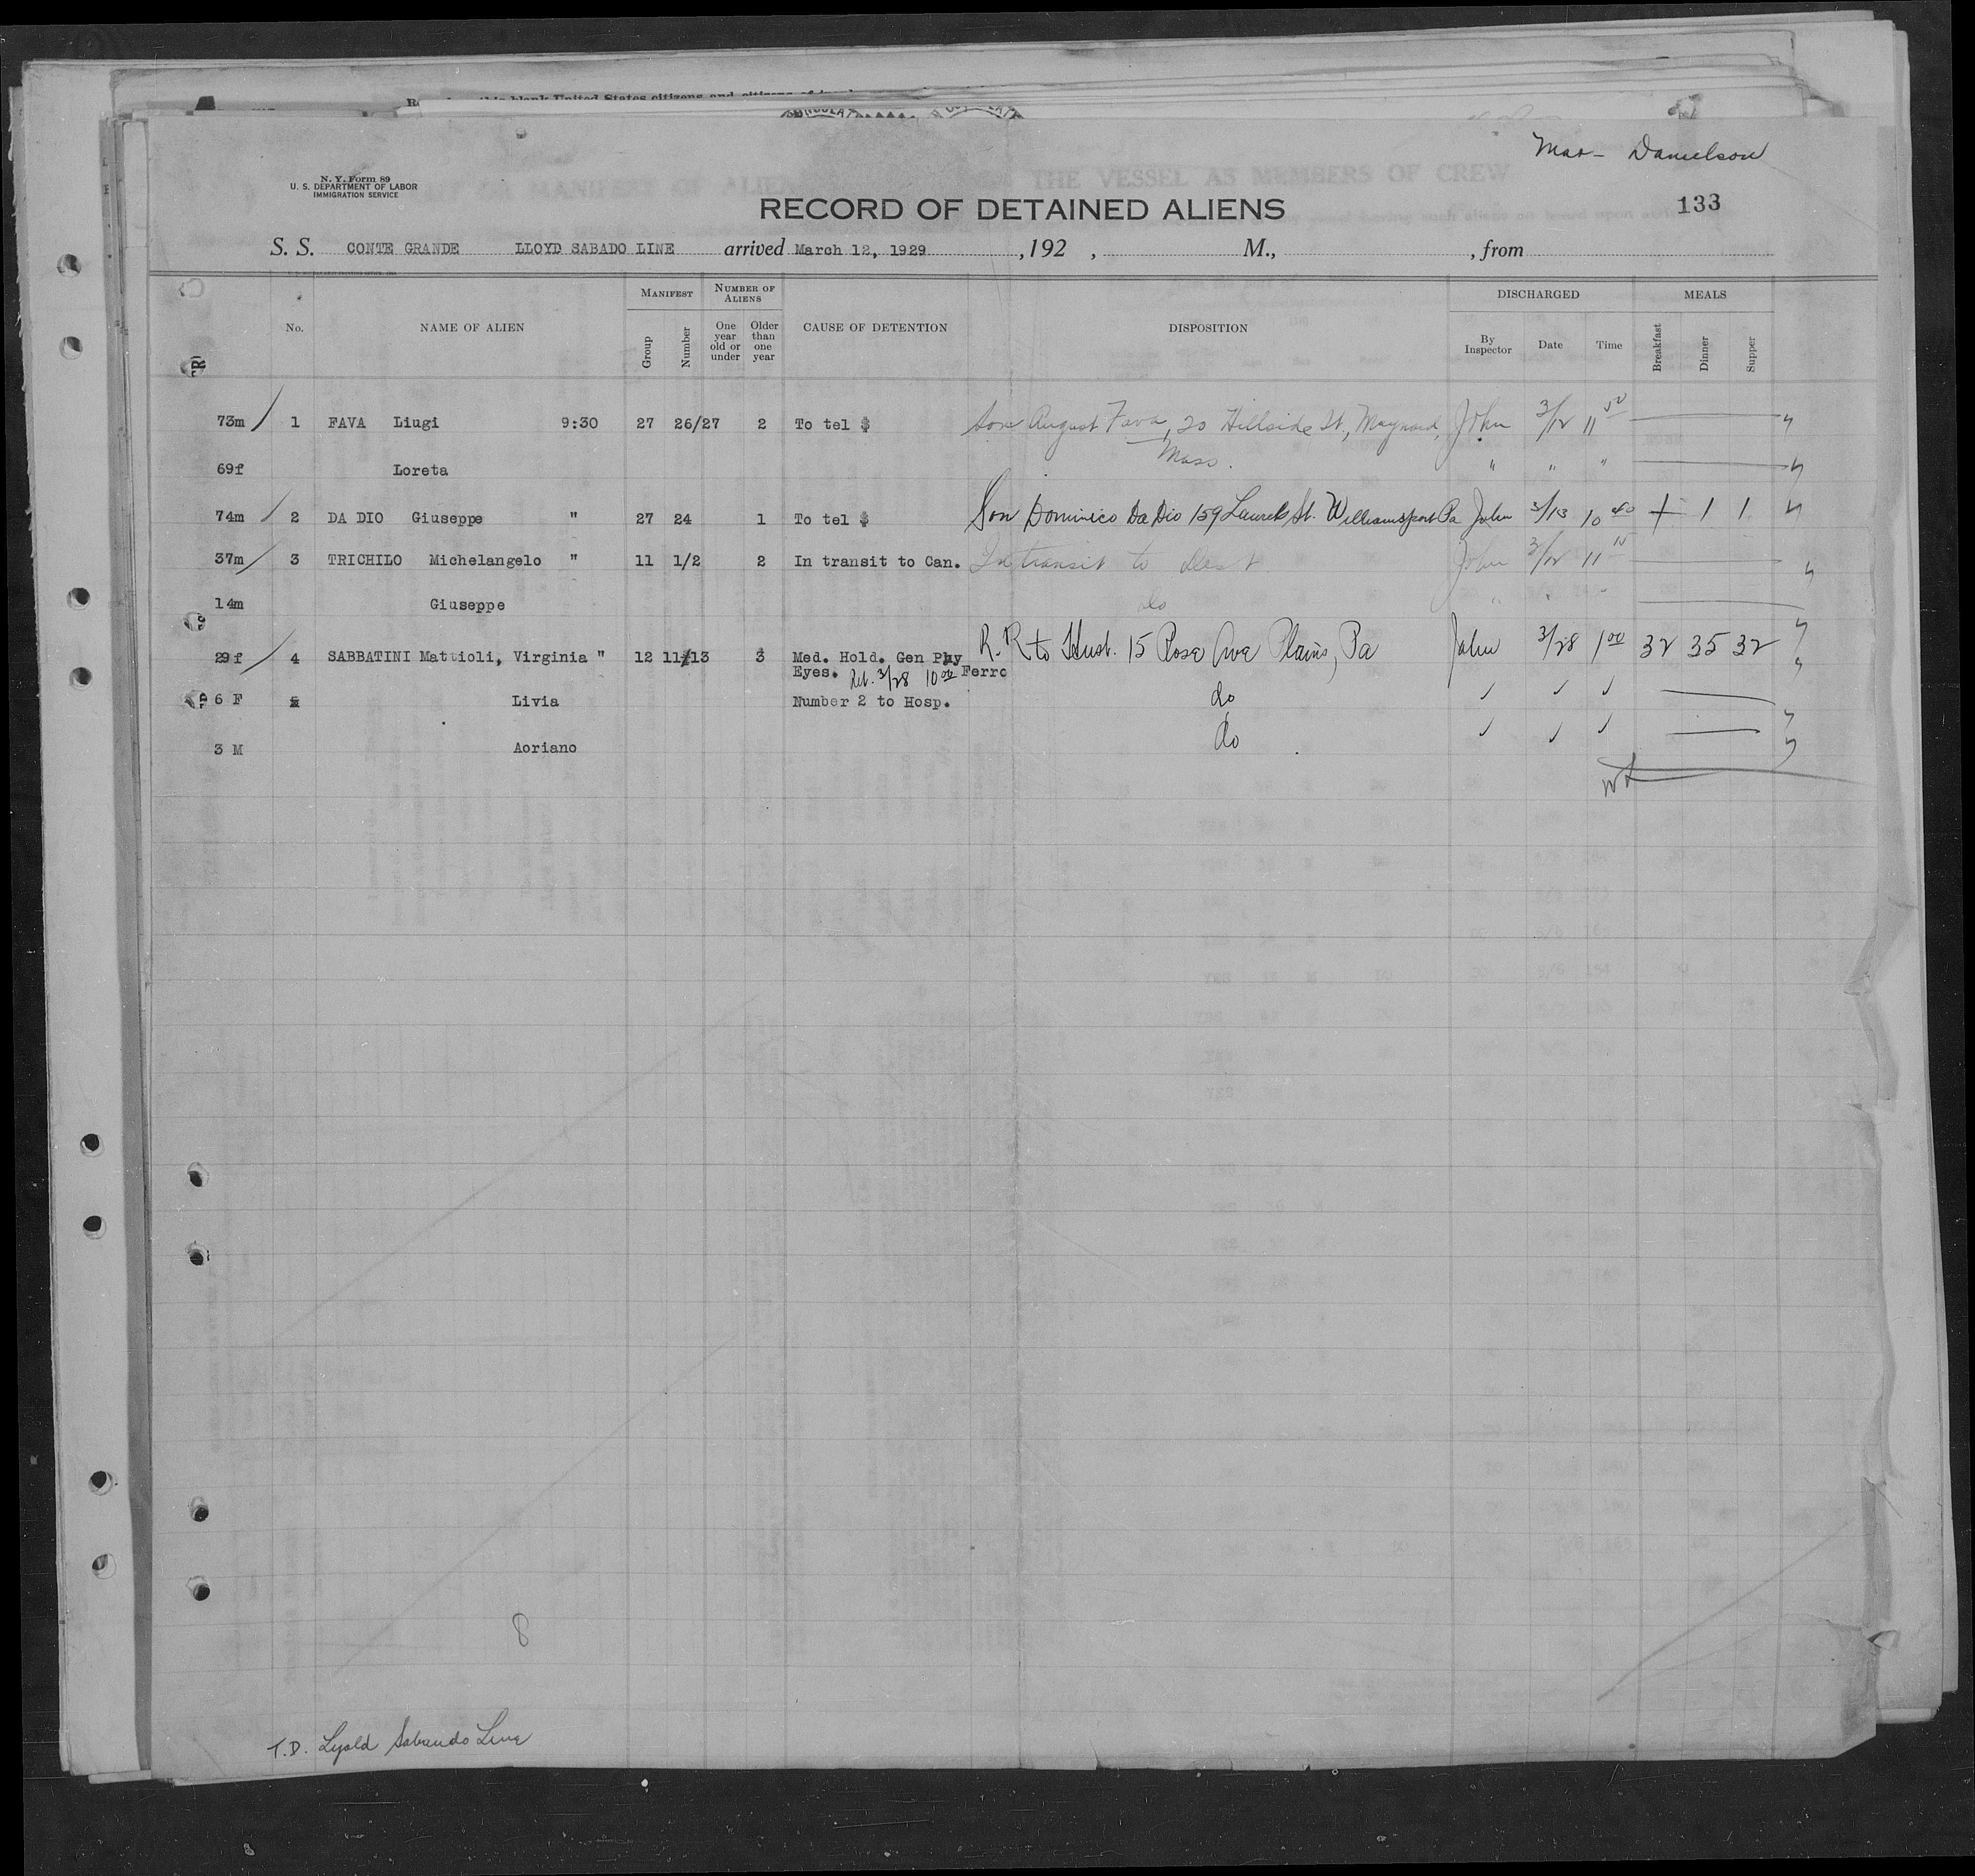 Mar- Danielson
N. Y. Form 89
U. S. DEPARTMENT OF LABOR
IMMIGRATION SERVICE
RECORD OF DETAINED ALIENS
133
S. S. CONTE GRANDE LLOYD SABADO LINE arrived March 12, 1929 , 192 , M., , from
No. NAME OF ALIEN MANIFEST Group Number NUMBER OF ALIENS One year old or under Older than one year CAUSE OF DETENTION DISPOSITION DISCHARGED By Inspector Date Time MEALS Breakfast Dinner Supper
73m 1 FAVA Liugi 9:30 27 26/27 2 To tel $ Son August Fava, 20 Hillside St, Maynard, John 3/12 11 50
Mass.
69f Loreta " " "
74m 2 DA DIO Giuseppe " 27 24 1 To tel $ Son Dominico Da Dio 159 Laurel St. Williamsport Pa John 3/13 10 40 1 1 1
37m 3 TRICHILO Michelangelo " 11 1/2 2 In transit to Can. In transit to dest John 3/12 11 15
14m Giuseppe do " " "
29f 4 SABBATINI Mattioli, Virginia " 12 11/13 3 Med. Hold. Gen Phy R. R to Husb. 15 Rose Ave Plains, Pa John 3/28 1 00 32 35 32
Eyes. Ret. 3/28 10 00 Ferro
6 F Livia Number 2 to Hosp. do
3 M Aoriano do
8
T.D. Lyold Sabaudo Line